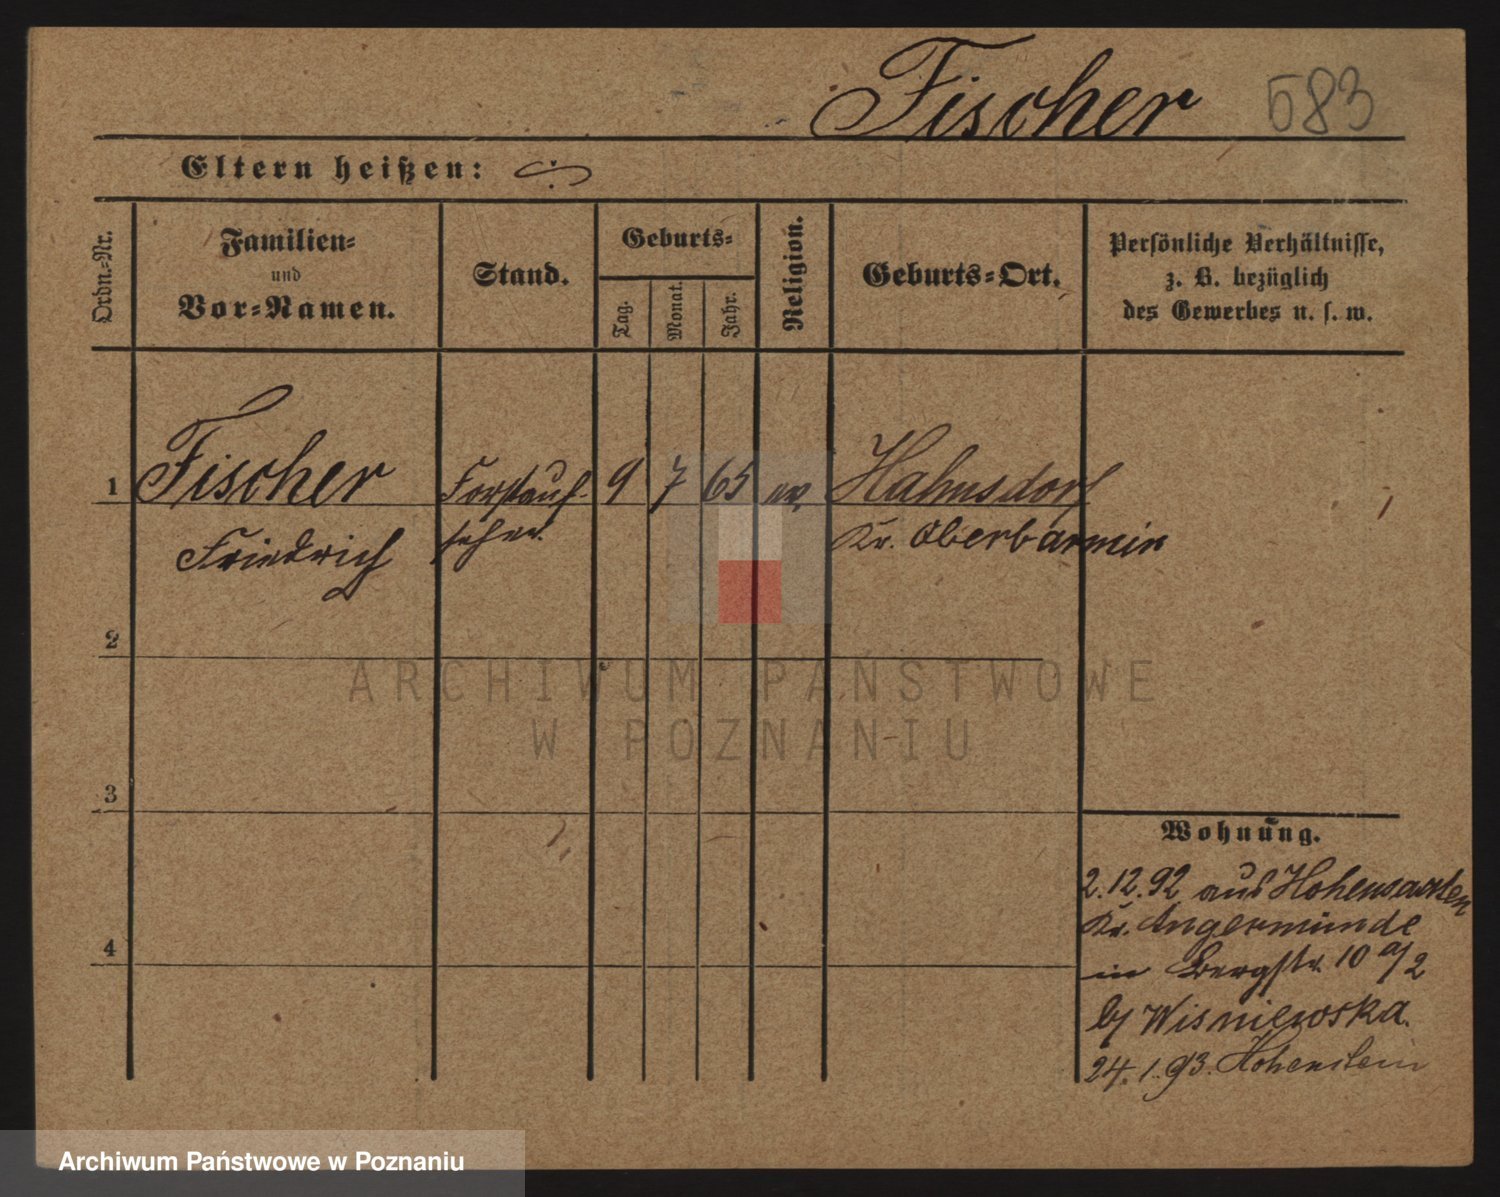 Fischer 583
Eltern heißen:
Ordn.-Nr.
Familien-
und
Vor-Namen.
Stand.
Geburts-
Tag.
Monat.
Jahr.
Religion.
Geburts-Ort.
Persönliche Verhältnisse,
z. B. bezüglich
des Gewerbes u. s. w.
1 Fischer Forstauf- 9 7 65 ev. Hahnsdorf
Friedrich seher. Kr. Oberbarmin
2
3
4
Wohnung.
2.12.92 aus Hohensaaten
Kr. Angermünde
in Bergstr. 10 a/2
b/ Wisniewska.
24.1.93. Hohenstein
ARCHIWUM PAŃSTWOWE
W POZNANIU
Archiwum Państwowe w Poznaniu